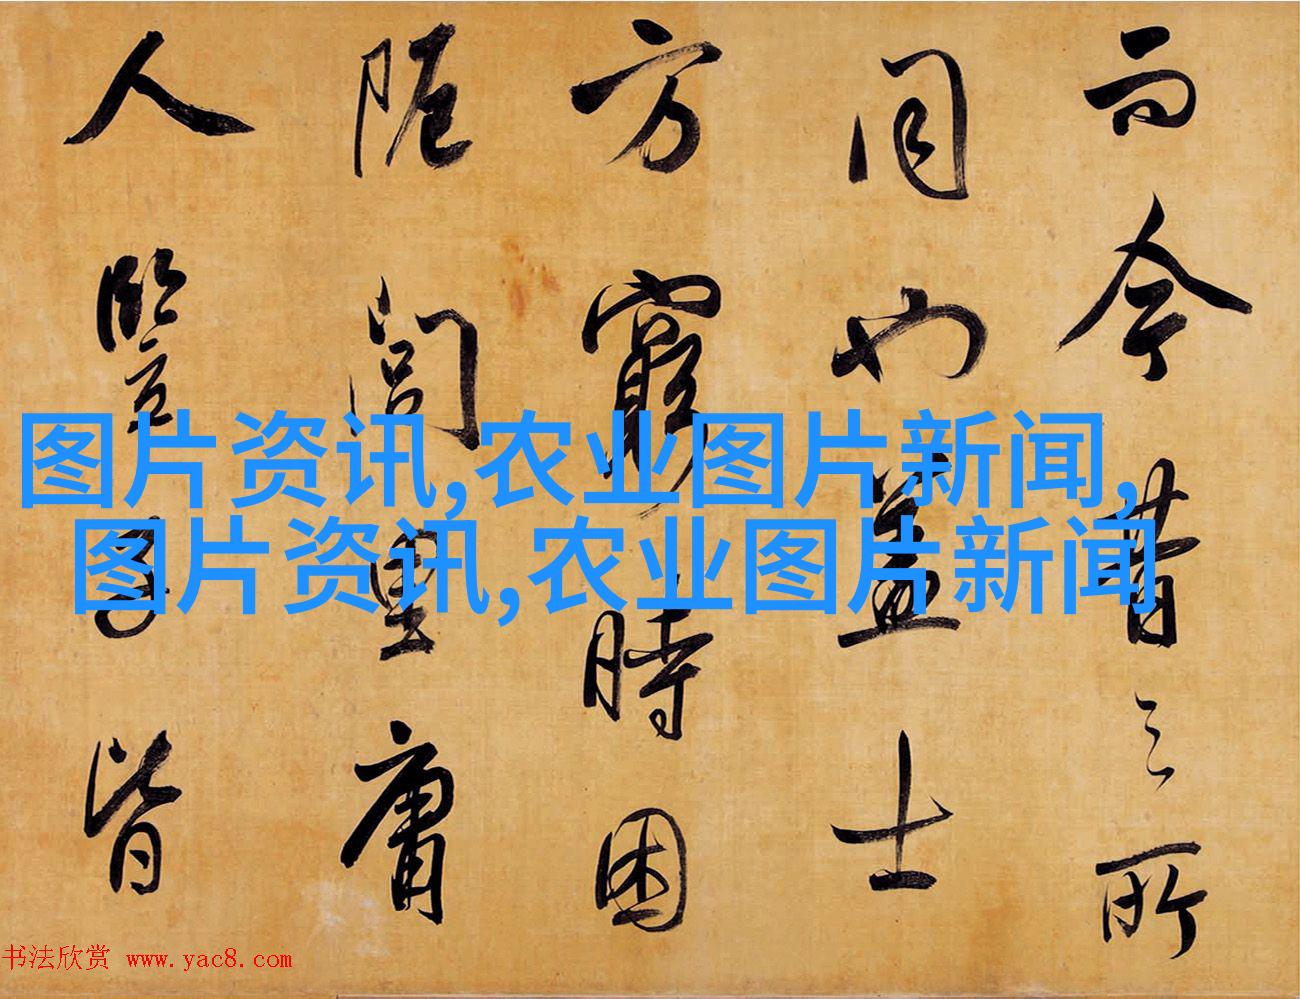 而今昔之所
同也盖士
方窮時困
阨閭里庸
人豎子皆
图片资讯,农业图片新闻,
图片资讯,农业图片新闻
书法欣赏 www.yac8.com